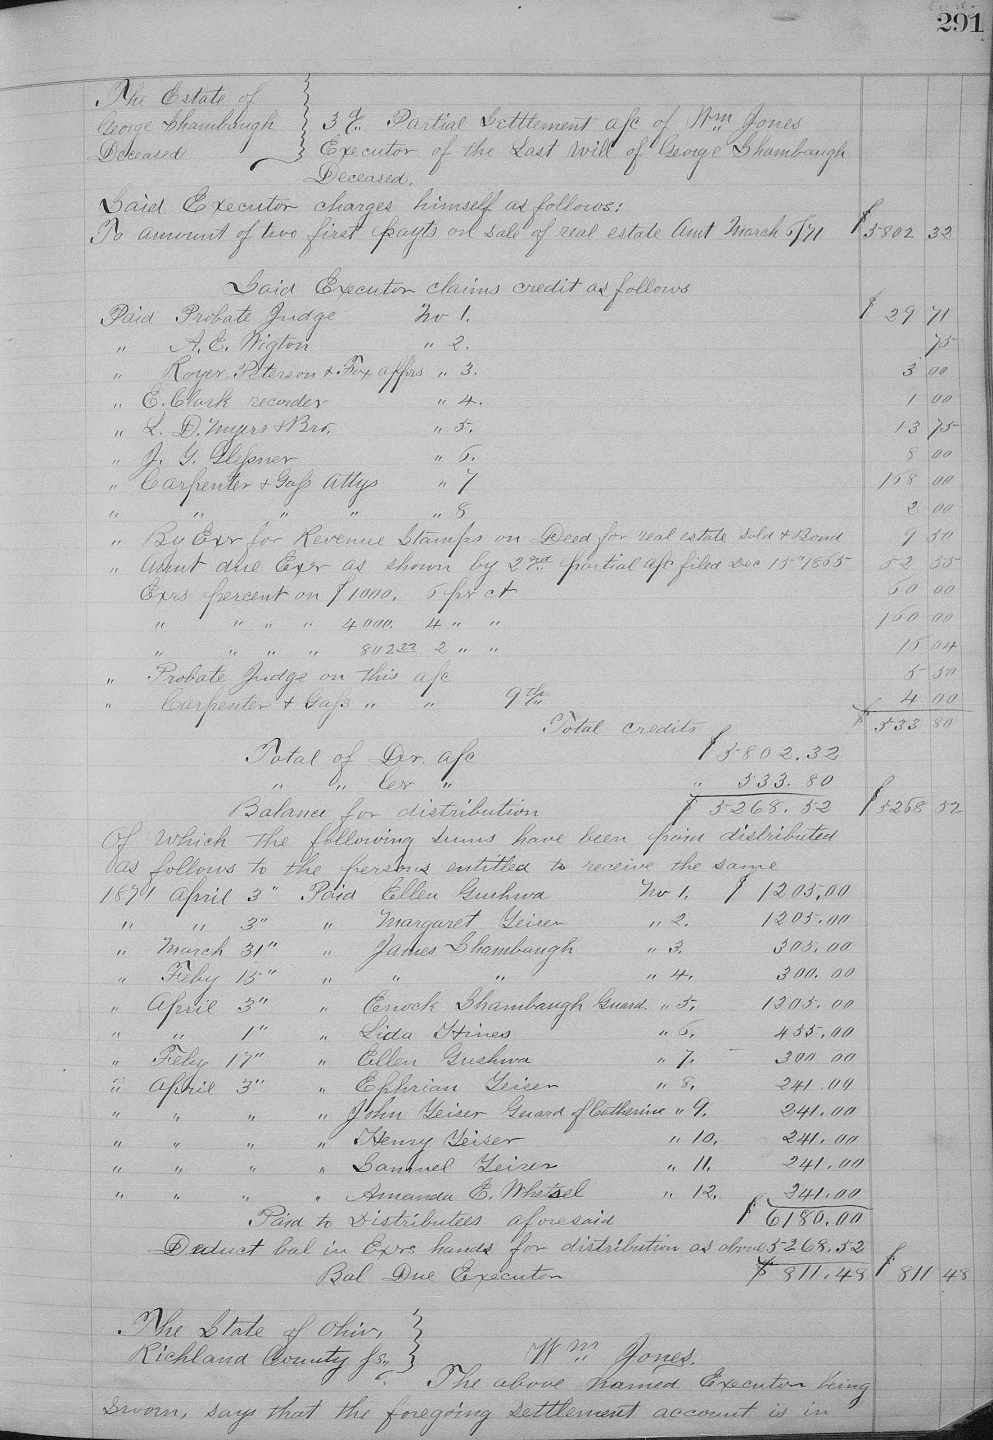 291
The Estate of
George Shambaugh
Deceased
3d Partial Settlement a/c of Wm Jones
Executor of the Last Will of George Shambaugh
Deceased.
Said Executor charges himself as follows:
To amount of two first payts on sale of real estate Amt March 6/71 $5802 32
Said Executor claims credit as follows
Paid Probate Judge No 1. $29 71
" A. E. Wigton " 2. 75
" Royer Peterson & Fox apprs " 3. 3 00
" E. Clark recorder " 4. 1 00
" L. D. Myers & Bro. " 5. 13 75
" J. G. Glessner " 6. 8 00
" Carpenter & Gass Attys " 7 168 00
" " " " " 8 2 00
" By Exr for Revenue Stamps on Deed for real estate sold & Bond 9 50
" Amnt due Exr as shown by 2nd partial a/c filed Dec 15" 1865 52 55
Exrs percent on $1000. 6 pr ct 60 00
" " " " 4000. 4 " " 160 00
" " " " 802 32 2 " " 16 04
" Probate Judge on this a/c 5 50
" Carpenter & Gass " " 9th 4 00
Total credits $533 80
Total of Dr. a/c $5802.32
" " Cr " " 533.80
Balance for distribution $5268.52 $5268 52
Of which the following sums have been from distributed
as follows to the persons entitled to receive the same
1871 April 3" Paid Ellen Gushwa No 1. $1205.00
" " 3" " Margaret Zeiser " 2. 1205.00
" March 31" " James Shambaugh " 3. 305.00
" Feby 15" " " " " 4. 300.00
" April 3" " Enock Shambaugh Guard. " 5. 1205.00
" " 1" " Lida Hines " 6. 455.00
" Feby 17" " Ellen Gushwa " 7. 300 00
" April 3" " Ephrian Zeiser " 8. 241.00
" " " " John Zeiser Guard of Catherine " 9. 241.00
" " " " Henry Zeiser " 10. 241.00
" " " " Samuel Zeiser " 11. 241.00
" " " " Amanda E. Whetsel " 12. 241.00
Paid to Distributees aforesaid $6180.00
Deduct bal in Exrs hands for distribution as above 5268.52
Bal Due Executor $811.48 $811 48
The State of Ohio,
Richland County ss.
Wm Jones.
The above named Executor being
sworn, says that the foregoing settlement account is in